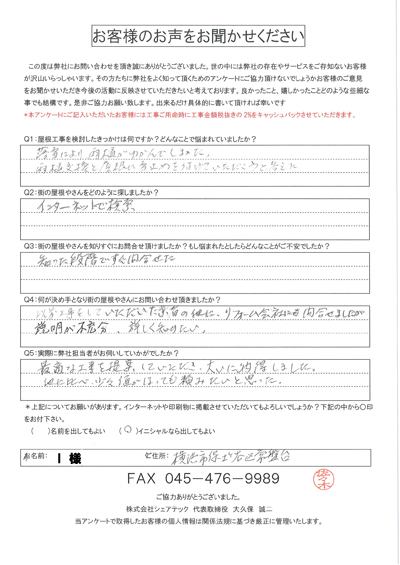 お客様のお声をお聞かせください
この度は弊社にお問い合わせを頂き誠にありがとうございました。世の中には弊社の存在やサービスをご存知ないお客様
が沢山いらっしゃいます。その方たちに弊社をよく知って頂くためのアンケートにご協力頂けないでしょうかお客様のご意見
をお聞かせいただき今後の活動に反映させていただきたいと考えております。良かったこと、嬉しかったことどのような些細な
事でも結構です。是非ご協力お願い致します。出来るだけ具体的に書いて頂ければ幸いです
*本アンケートにご記入いただいたお客様には工事ご用命時に工事金額税抜きの 2%をキャッシュバックさせていただきます。
Q1:屋根工事を検討したきっかけは何ですか?どんなことで悩まれていましたか?
落雪により雨樋がゆがんでしまった。
Q2:街の屋根やさんをどのように探しましたか?
インターネットで検索
Q3:街の屋根やさんを知りすぐにお問合せ頂けましたか?もし悩まれたとしたらどんなことがご不安でしたか?
知った段階ですぐ問合せた
Q4:何が決め手となり街の屋根やさんにお問い合わせ頂きましたか?
いただいた業者の他に、リフォーム会社にも問合せましたが
説明が不充分、詳しく知りたい。
Q5:実際に弊社担当者がお伺いしていかがでしたか?
最適な工事を提案していただき、大いに納得しました。
他に比べ少々値がはっても頼みたいと思った。
*上記についてお願いがあります。インターネットや印刷物に掲載させていただいてもよろしいでしょうか?下記の中から〇印
をお付下さい。
( )名前を出してもよい (〇)イニシャルなら出してもよい
お名前: I 様 ご住所: 横浜市保土ヶ谷区常盤台
FAX 045-476-9989
佐々木
ご協力ありがとうございました。
株式会社シェアテック 代表取締役 大久保 誠二
当アンケートで取得したお客様の個人情報は関係法規に基づき厳正に管理いたします。